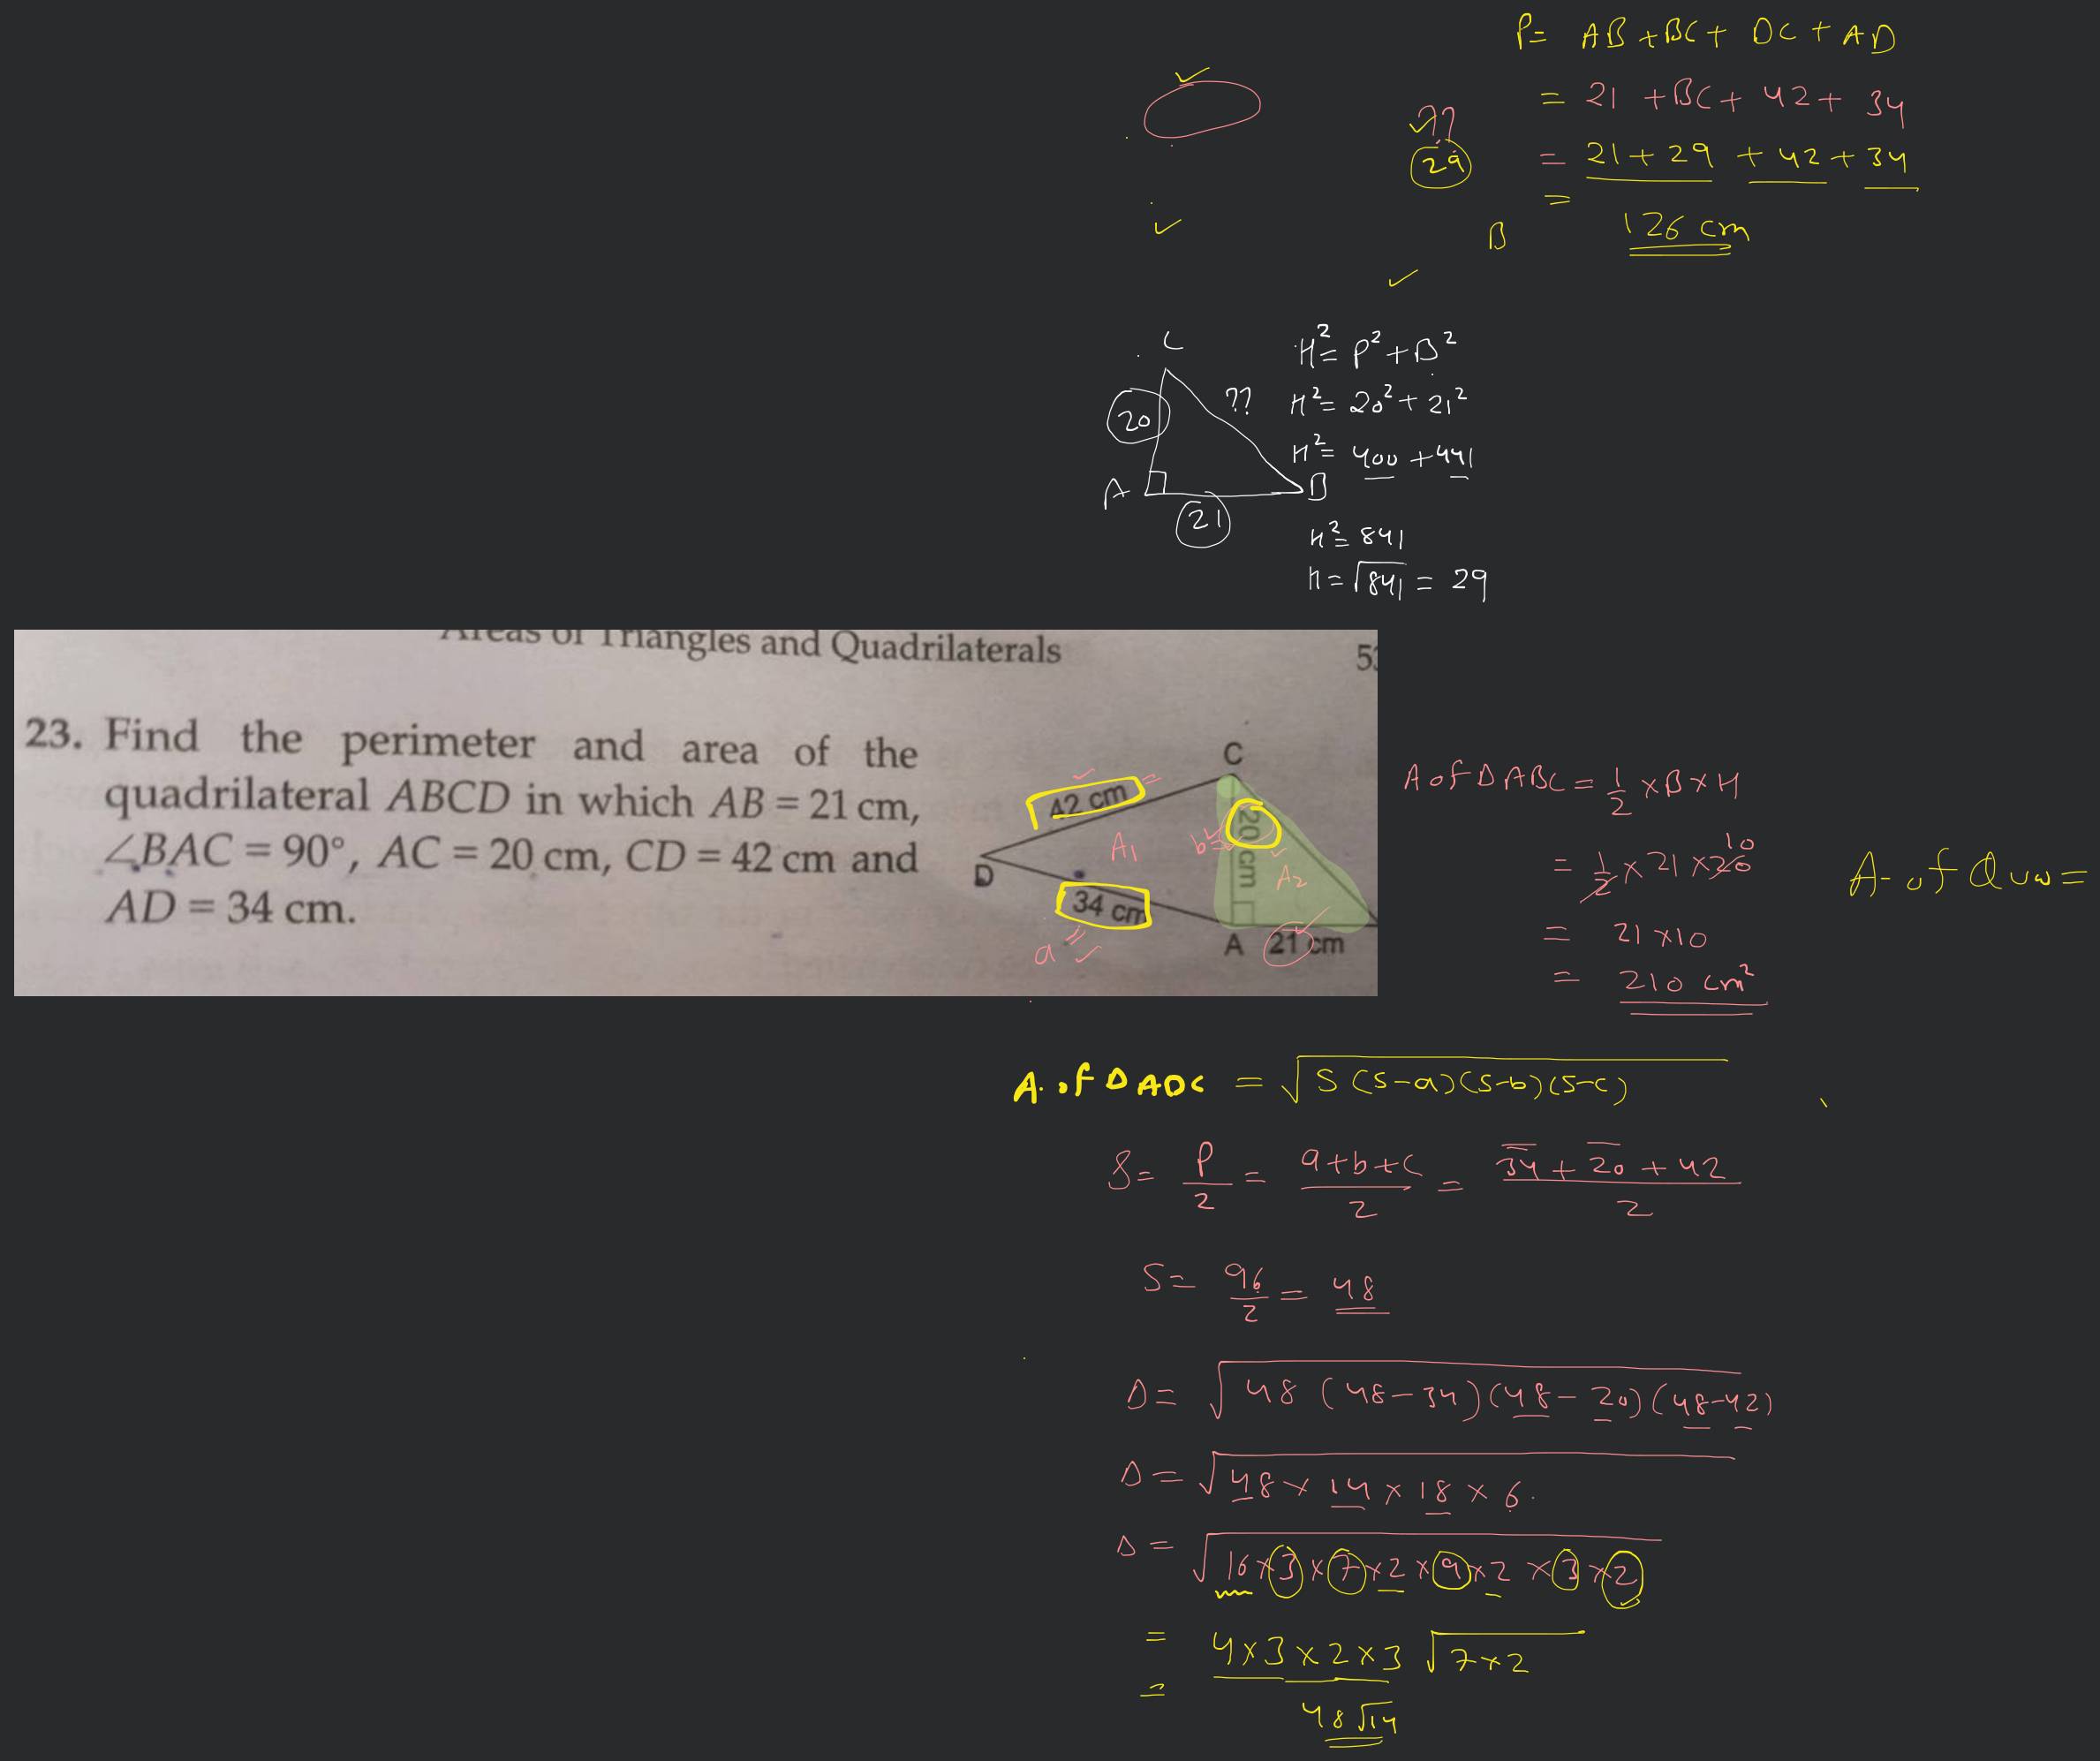 P= AB +BC + DC + AD
= 21 +BC + 42 + 34
??
29
= 21 + 29 + 42 + 34
=
126 cm
B
C
20
??
A
B
21
H²= P² + B²
H²= 20² + 21²
H²= 400 + 441
H²= 841
H = √841 = 29
Areas of Triangles and Quadrilaterals
23. Find the perimeter and area of the
quadrilateral ABCD in which AB = 21 cm,
∠BAC = 90°, AC = 20 cm, CD = 42 cm and
AD = 34 cm.
C
42 cm
A₁
b=
20 cm
A₂
D
34 cm
a =
A
21 cm
A of Δ ABC = 1/2 × B × H
= 1/2 × 21 × 20 10
= 21 × 10
= 210 cm²
A. of Quw =
A. of Δ ADC = √S (S-a) (S-b) (S-c)
S= P/2 = a+b+c/2 = 34 + 20 + 42/2
S= 96/2 = 48
Δ = √48 (48-34) (48-20) (48-42)
Δ = √48 × 14 × 18 × 6.
Δ = √16 × 3 × 7 × 2 × 9 × 2 × 3 × 2
= 4 × 3 × 2 × 3 √7×2
=
48√14